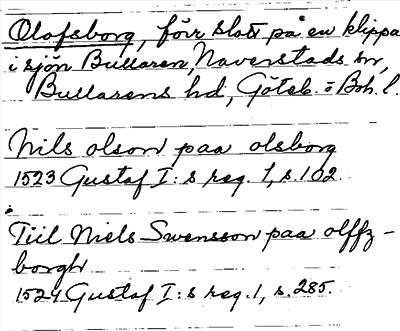 Olofsborg, förr slott på en klippa
i sjön Bullaren, Naverstads sn,
Bullarens hd, Göteb. o Boh. l.
Nils olson paa olsborg
1523 Gustaf I:s reg. 1, s. 102
Tiil Niels Swensson paa olffz-
borgh
1524 Gustaf I:s reg. 1, s. 285.